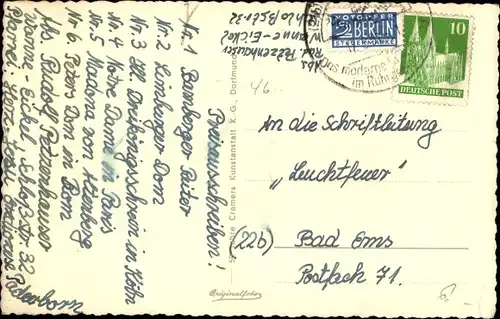 Preisausschreiben!
Nr. 1 Bamberger Reiter
Nr. 2 Limburger Dom
Nr. 3 Hl. Dreikönigsschrein in Köln
Nr. 4 Notre Dame in Paris
Nr. 5 Madonna von Altenberg
Nr. 6 Peters Dom in Rom
Abs. Rudolf Petzenhauser
Wanne-Eickel Schloßstr. 32
Paderborn
Abs
Rud. Petzenhauser
Wanne-Eickel
Schloßstr. 32
46
Cramers Kunstanstalt K.G., Dortmund
Originalfoto
NOTOPFER
2 BERLIN
STEUERMARKE
10
DEUTSCHE POST
das moderne
im Ruhr
An die Schriftleitung
„Leuchtfeuer"
(22b) Bad Ems
Postfach 71.